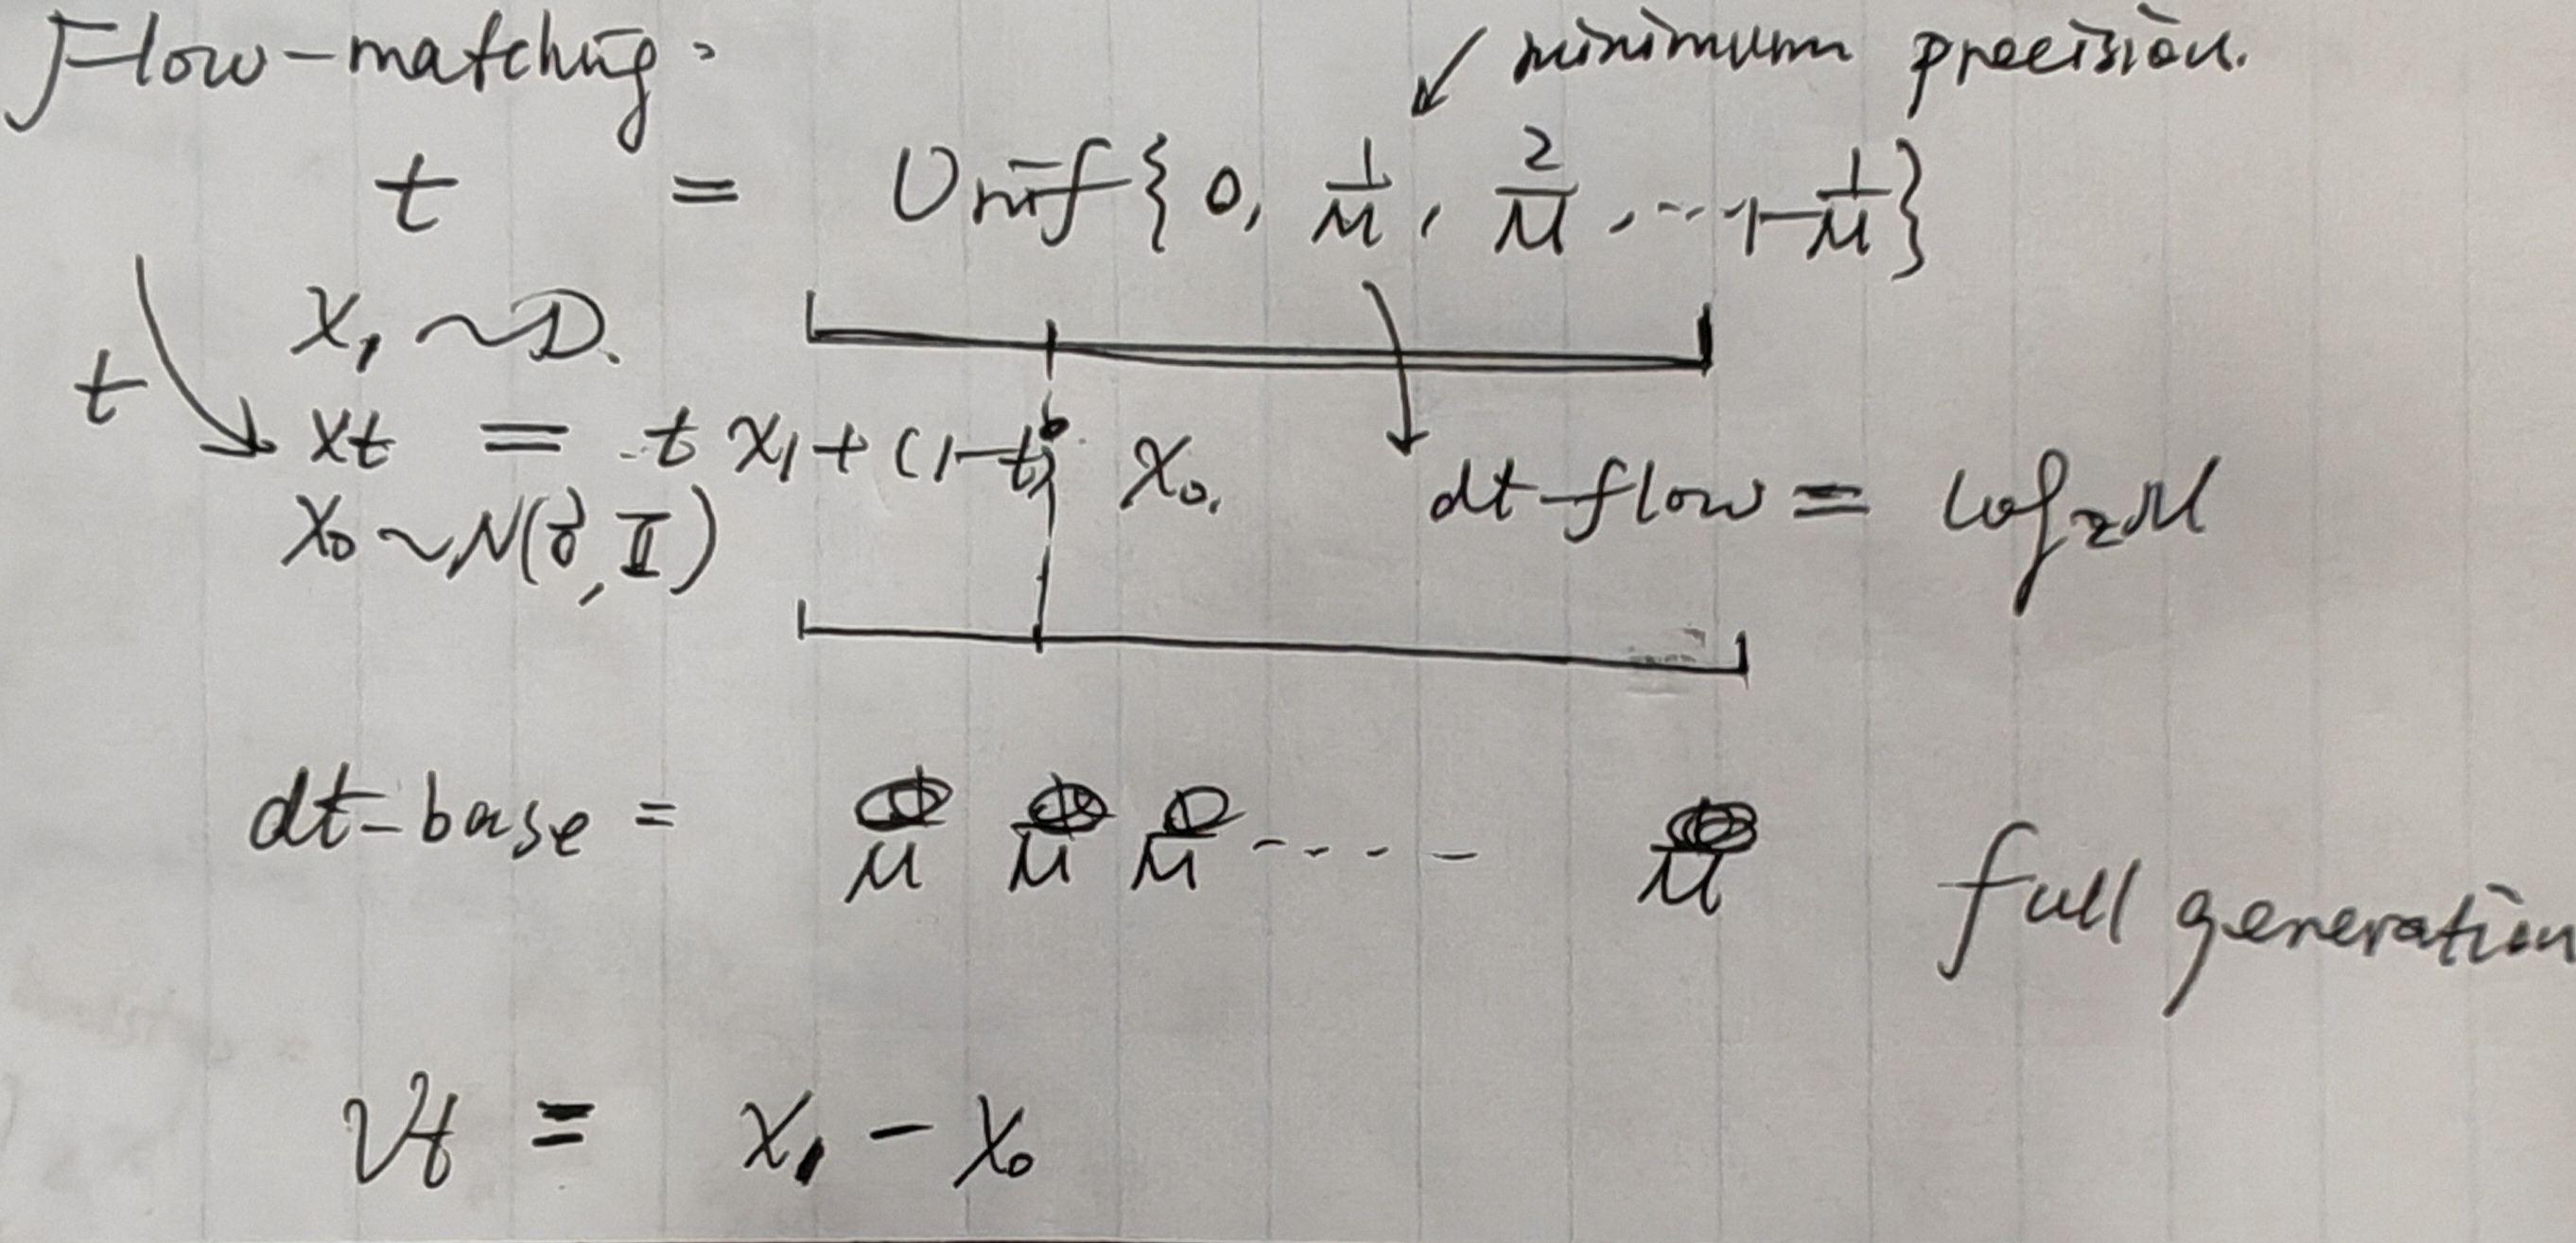 Flow-matching:
minimum precision.
t = Unif{0, 1/M, 2/M, ... 1-1/M}
x₁ ~ D.
t
xt = t x₁ + (1-t) x₀.
dt-flow = log₂M
x₀ ~ N(0, I)
dt-base = M M M ---- M
full generation
Vt = x₁ - x₀